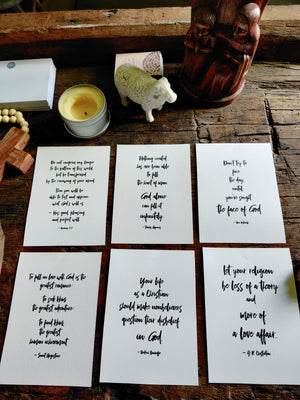 Do not conform any longer
to the pattern of this world,
but be transformed
by the renewing of your mind.
Then you will be
able to test and approve
what God's will is
- His good, pleasing
and perfect will.
Nothing created
has ever been able
to fill
the heart of man.
God alone
can fill it
infinitely.
- Thomas Aquinas
Don't try to
face
the day
until
you've sought
the face of God.
To fall in love with God is the
greatest romance;
to seek Him
the greatest adventure;
to find Him
the greatest
human achievement.
- Saint Augustine
Your life
as a Christian
should make nonbelievers
question their disbelief
in God.
let your religion
be less of a theory
and
more of
a love affair.
- G.K. Chesterton